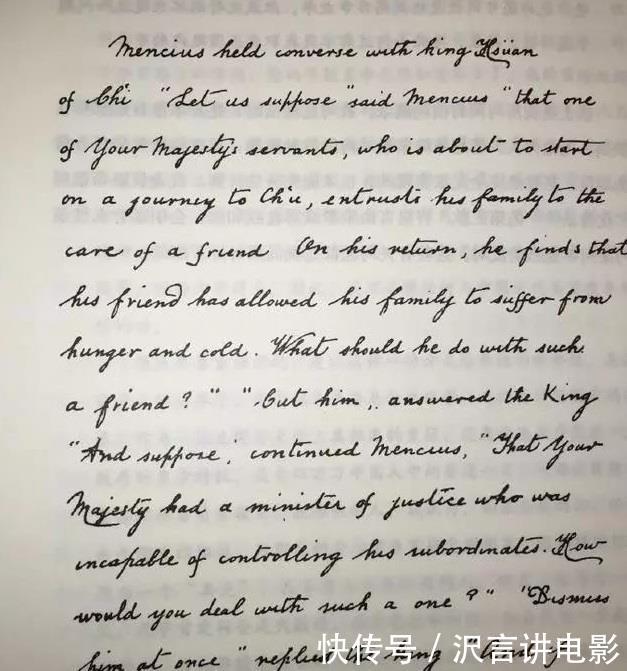 Mencius held converse with king Hsüan
of Ch'i "Let us suppose" said Mencius "that one
of Your Majesty's servants, who is about to start
on a journey to Ch'u, entrusts his family to the
care of a friend On his return, he finds that
his friend has allowed his family to suffer from
hunger and cold. What should he do with such
a friend?" "Cut him, answered the King
"And suppose", continued Mencius, "That Your
Majesty had a minister of justice who was
incapable of controlling his subordinates. How
would you deal with such a one?" "Dismiss
him at once" replied the King "And
快传号 / 沢言讲电影